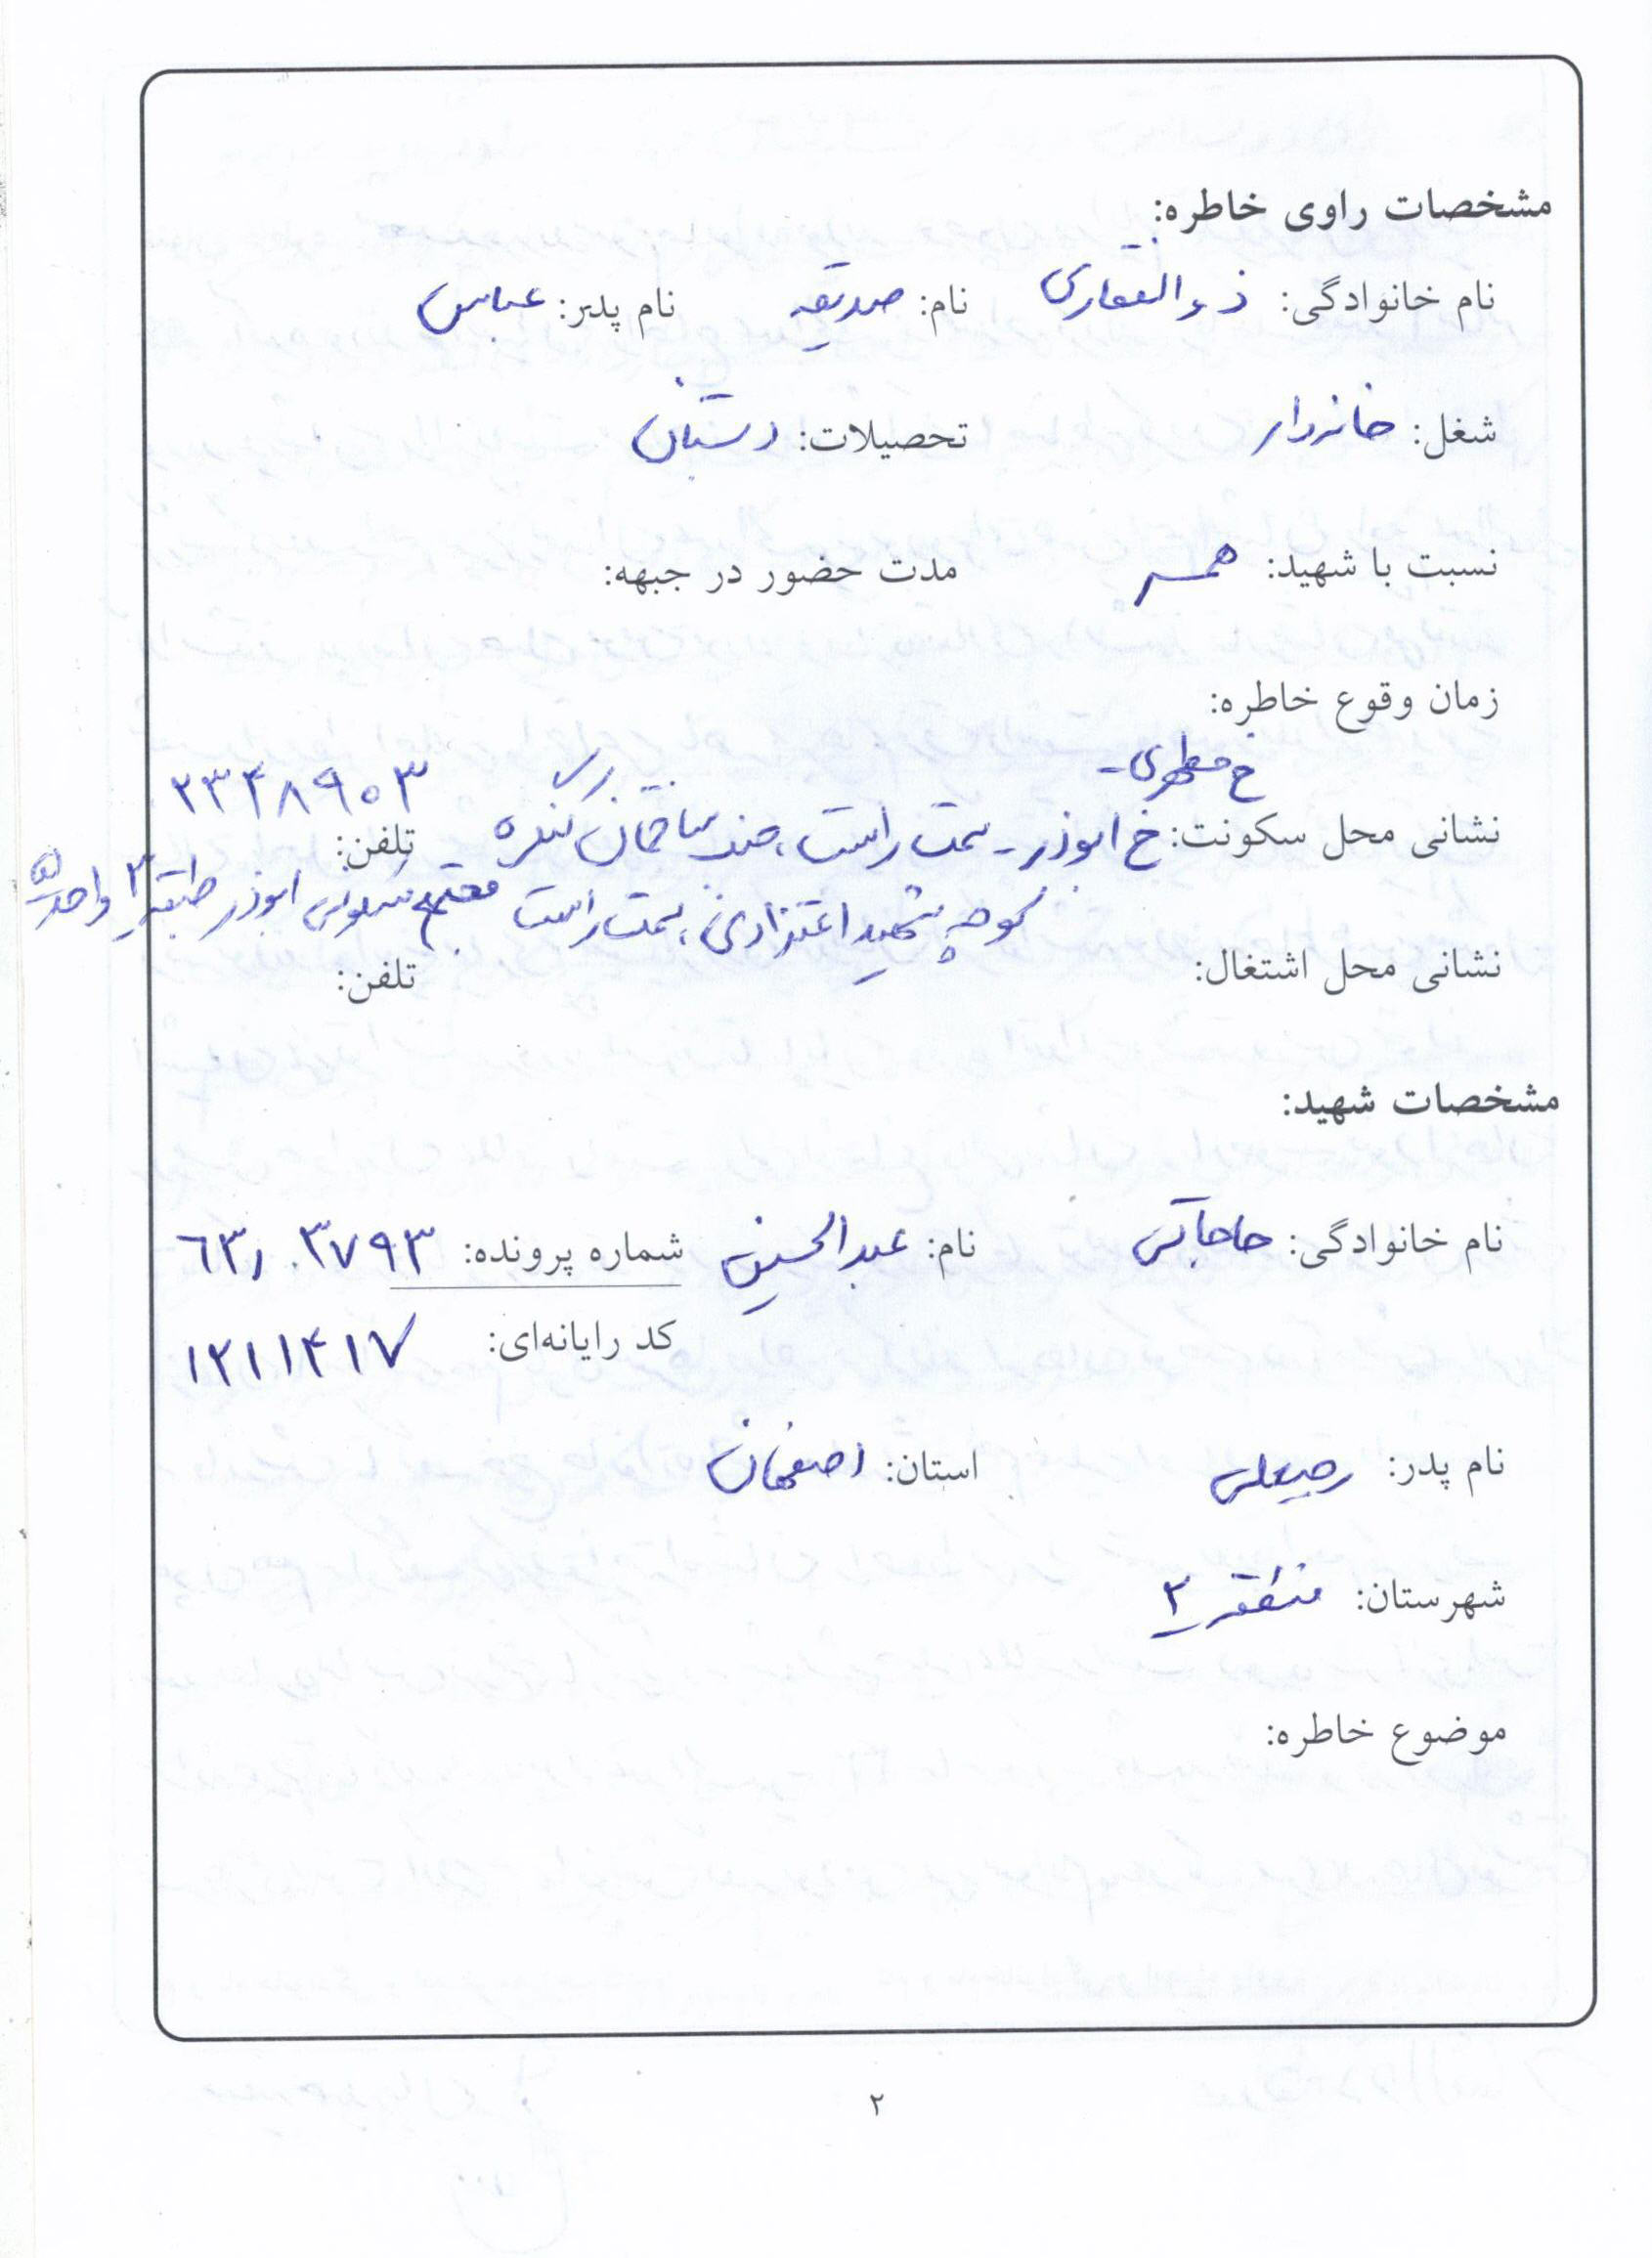 مشخصات راوی خاطره:
نام خانوادگی: ذوالفقاری نام: صدیقه نام پدر: عباس
شغل: خانه‌دار تحصیلات:
نسبت با شهید: همسر مدت حضور در جبهه:
زمان وقوع خاطره:
خ مطهری -
نشانی محل سکونت: خ ابوذر - سمت راست، ساختمان تلفن: ۲۳۴۸۹۰۳
کوچه شهید سمت راست مجتمع مسکونی ابوذر طبقه ۳ واحد ۵
نشانی محل اشتغال: تلفن:
مشخصات شهید:
نام خانوادگی: حاجاتی نام: عبدالحسین شماره پرونده: ۶۳/۰۳۷۹۳
کد رایانه‌ای: ۱۲۱۱۴۱۷
نام پدر: رجبعلی استان: اصفهان
شهرستان: منطقه ۳
موضوع خاطره:
۲